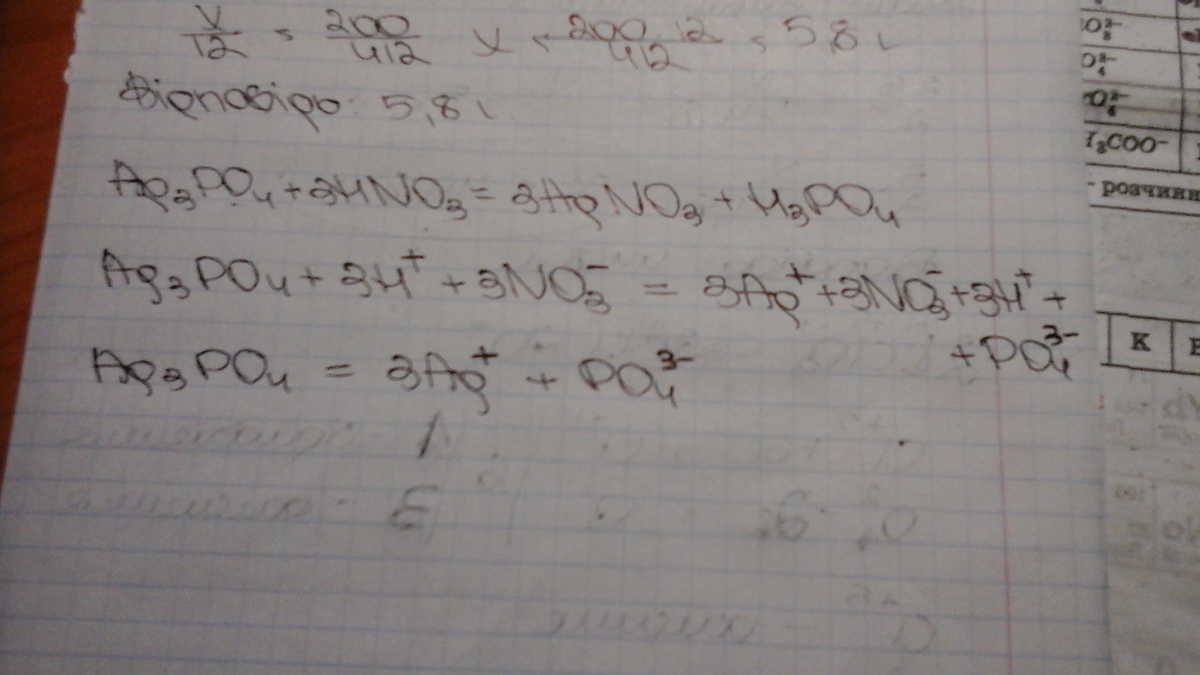 x/12 = 200/412 x = 200·12/412 = 5,8 г
Відповідь: 5,8 г
Ag₃PO₄ + 3HNO₃ = 3AgNO₃ + H₃PO₄
Ag₃PO₄ + 3H⁺ + 3NO₃⁻ = 3Ag⁺ + 3NO₃⁻ + 3H⁺ +
+ PO₄³⁻
Ag₃PO₄ = 3Ag⁺ + PO₄³⁻
COO⁻
розчинн
K